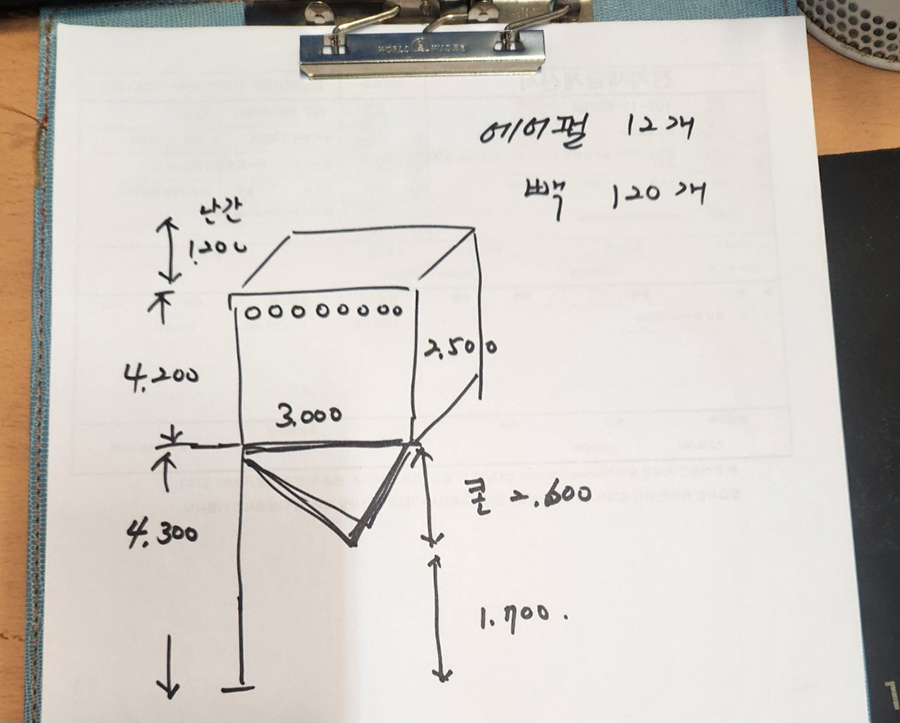 에어펄 12개
빽 120개
난간
1.200
4.200
2.500
3.000
콘 2.600
4.300
1.700.